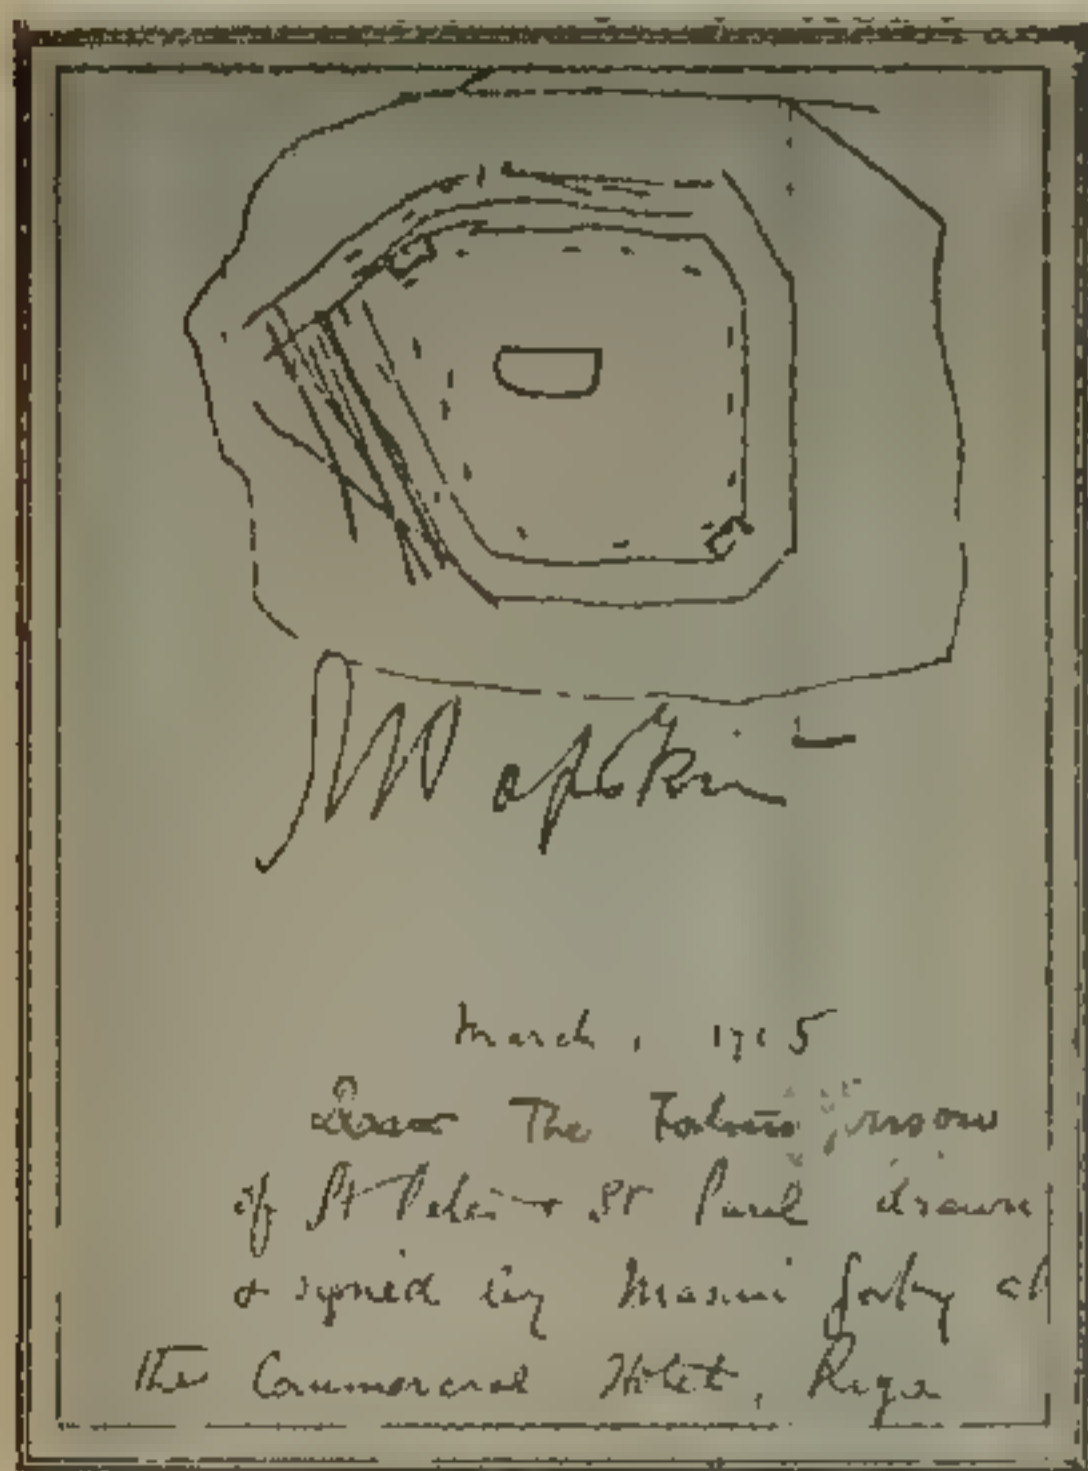 March, 1905
The Fortress Prison
of St Peter + St Paul drawn
+ signed by Maxim Gorky at
The Commercial Hotel, Riga